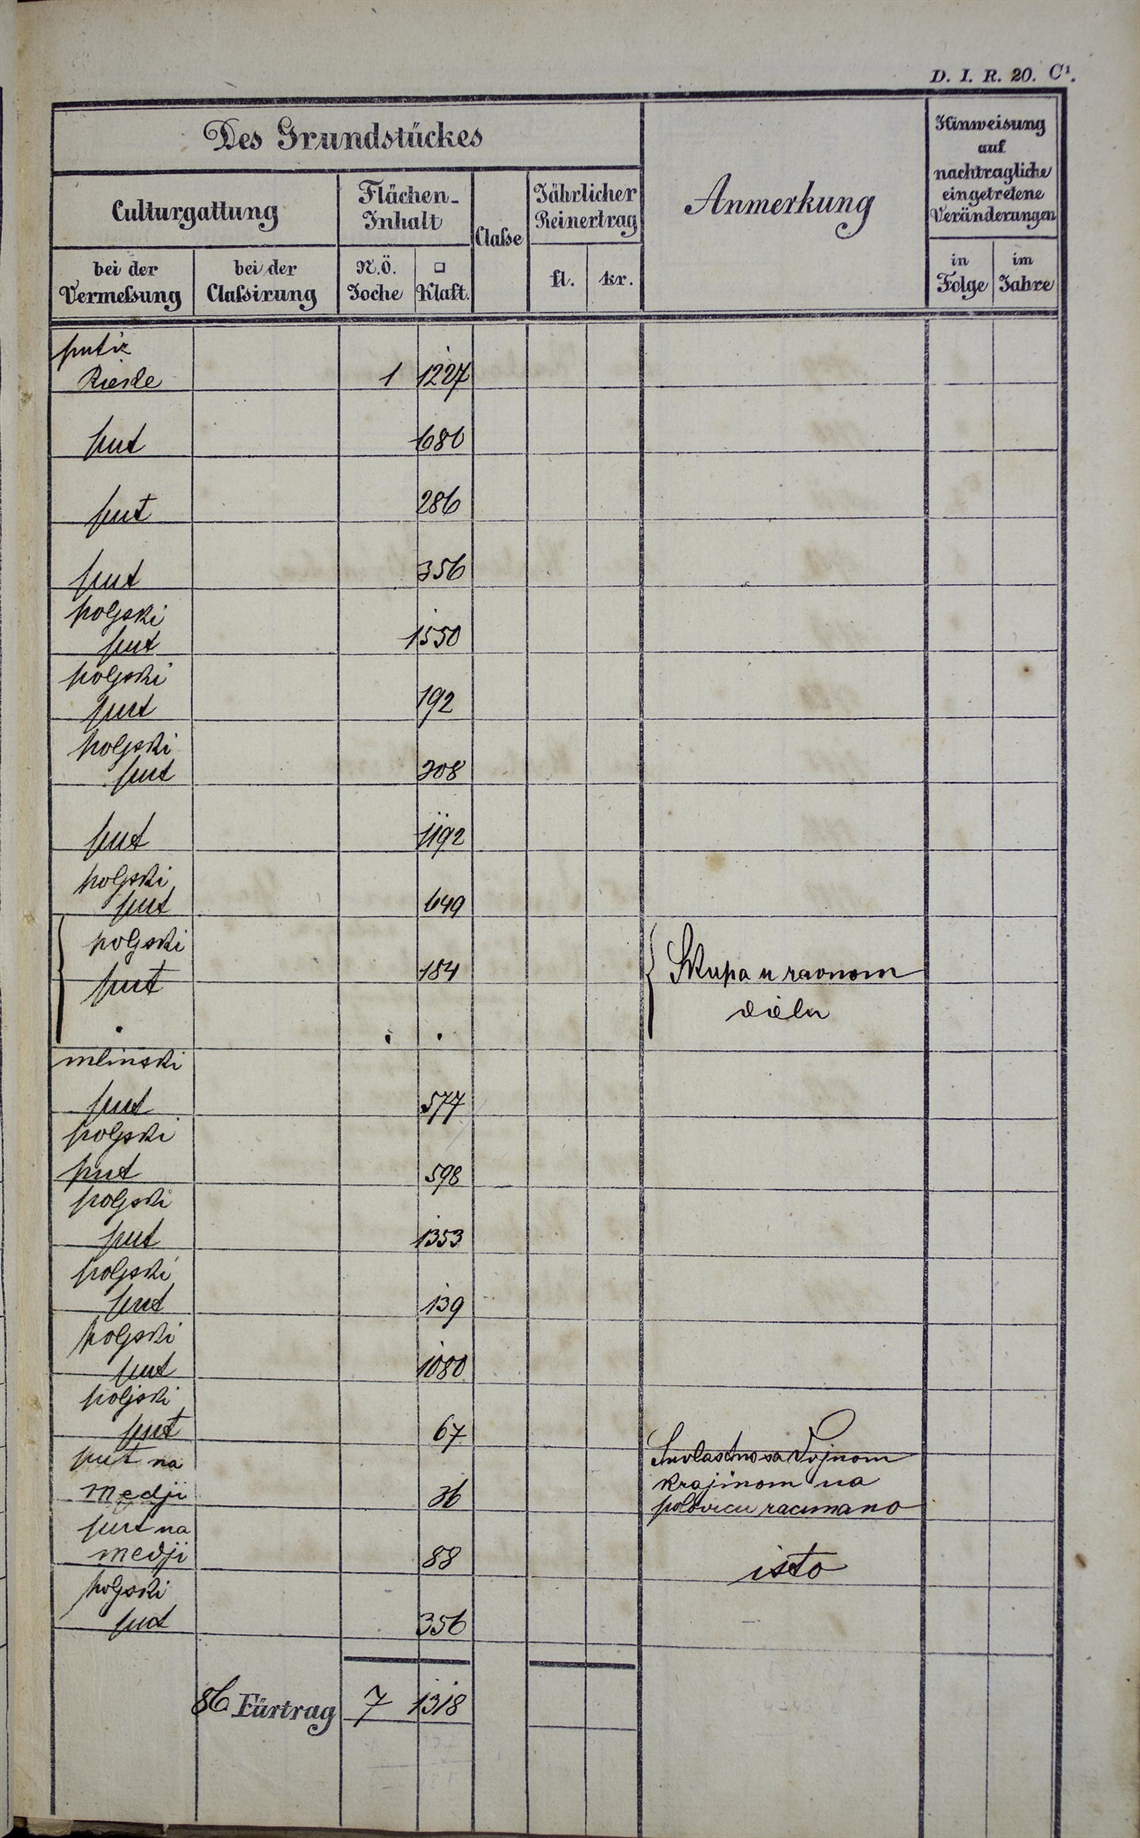 D. I. R. 20. C¹.
Des Grundstückes
Anmerkung
Hinweisung
auf
nachtragliche
eingetretene
Veränderungen
Culturgattung
Flächen-
Inhalt
Claße
Jährlicher
Reinertrag
bei der
Vermeßung
bei der
Claßirung
N.Ö.
Joche
□
Klaft.
fl.
kr.
in
Folge
im
Jahre
1 1227
put 680
put 286
put 356
poljski
put 1550
poljski
put 192
poljski
put 308
put 1192
poljski
put 649
poljski
put 184
Skupa u ravnom
dielu
mlinski
put 577
poljski
put 598
poljski
put 1353
poljski
put 139
poljski
put 1080
poljski
put 67
put na
medji 36
Suvlastno sa Vojnom
krajinom na
polovicu racunano
put na
medji 88 isto
poljski
put 356
86 Fürtrag 7 1318